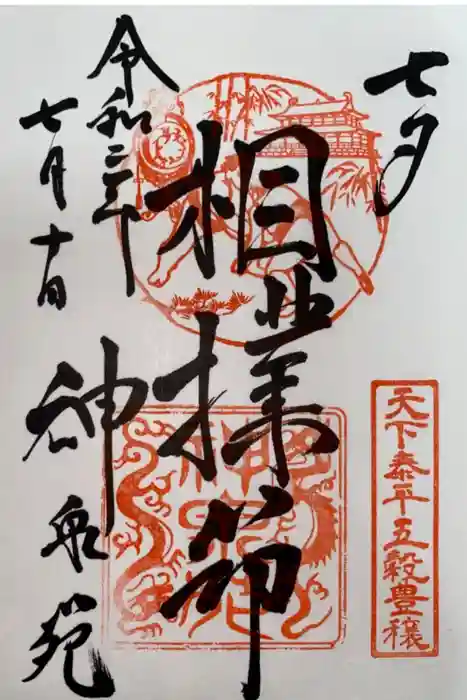 七夕
天下泰平五穀豊穣
相撲節
神泉苑
令和三年
七月十日
神泉苑